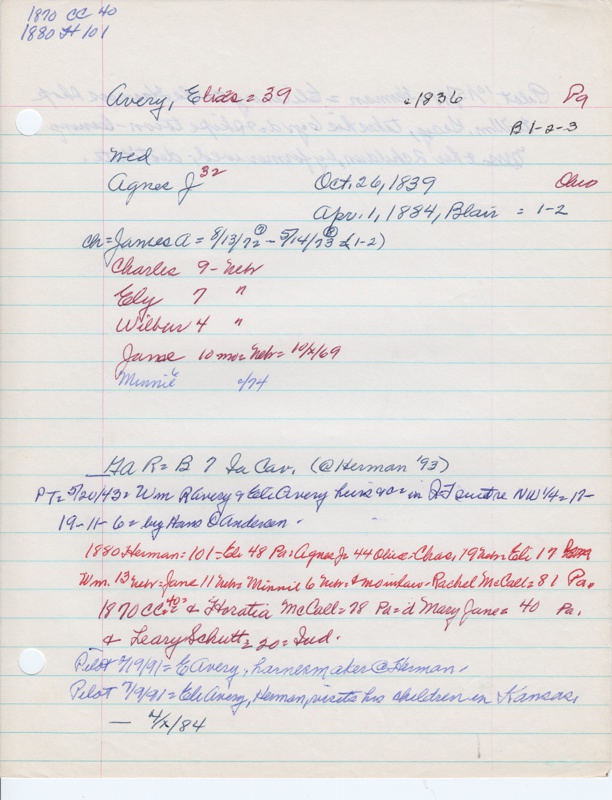 1870 CC 40
1880 H 101
Avery, Elias = 39 c1836 Pa
B 1-2-3
Wed
Agnes J 32 Oct. 26, 1839 Ohio
Apr. 1, 1884, Blair = 1-2
ch = James A = 8/13/72 - 5/14/73 = (1-2)
Charles 9 - Nebr
Ely 7 "
Wilbur 4 "
Jane 10 mo = Nebr = 10/x/69
Minnie c/74
GAR = B 7 Ia Cav. (@ Herman '93)
PT = 5/20/43 = Wm R Avery & Eli Avery heirs in NW 1/4 = 17-
19-11-6 = by Hans C Andersen.
1880 Herman = 101 = Eli 48 Pa = Agnes J 44 Ohio = Chas. 19 Nebr = Eli 17
Wm. 13 Nebr = Jane 11 Nebr = Minnie 6 Nebr & Mo inlaw = Rachel McCall = 81 Pa.
1870 CC = 40 = & Horatia McCall = 78 Pa = d Mary Jane = 40 Pa.
& Leary Schutt = 20 = Ind.
Pilot 7/9/91 = E Avery, harnessmaker @ Herman.
Pilot 7/9/91 = Eli Avery, Herman, visits his children in Kansas.
— 4/x/84